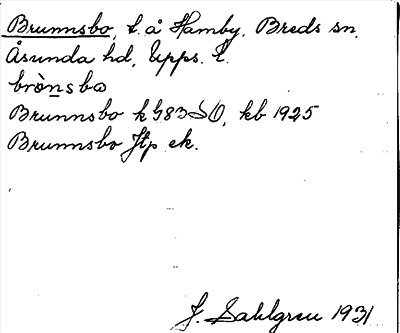 Brunnsbo, t. å Hamby, Breds sn,
Åsunda hd, Upps. l.
brònsbo
Brunnsbo k G83SO, kb 1925
Brunnsbo Jtp ek.
J. Sahlgren 1931